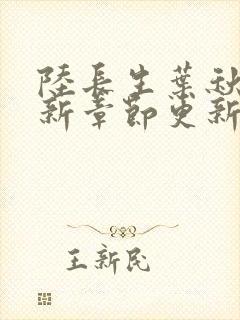 陸長生葉秋
新章節更新
王新民